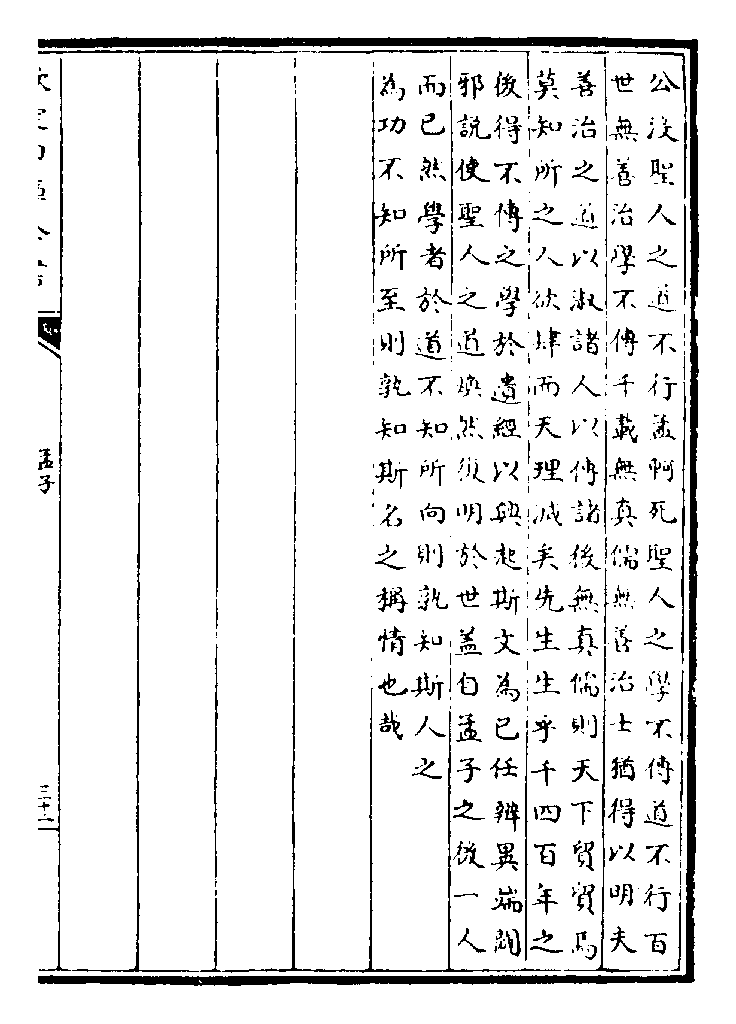 公没聖人之道不行孟軻死聖人之學不傳道不行百
世無善治學不傳千載無真儒無善治士猶得以明夫
善治之道以淑諸人以傳諸後無真儒則天下貿貿焉
莫知所之人欲肆而天理滅矣先生生乎千四百年之
後得不傳之學於遺經以興起斯文為已任辨異端闢
邪說使聖人之道煥然復明於世蓋自孟子之後一人
而已然學者於道不知所向則孰知斯人之
為功不知所至則孰知斯名之稱情也哉
欽定四庫全書
孟子
三十二